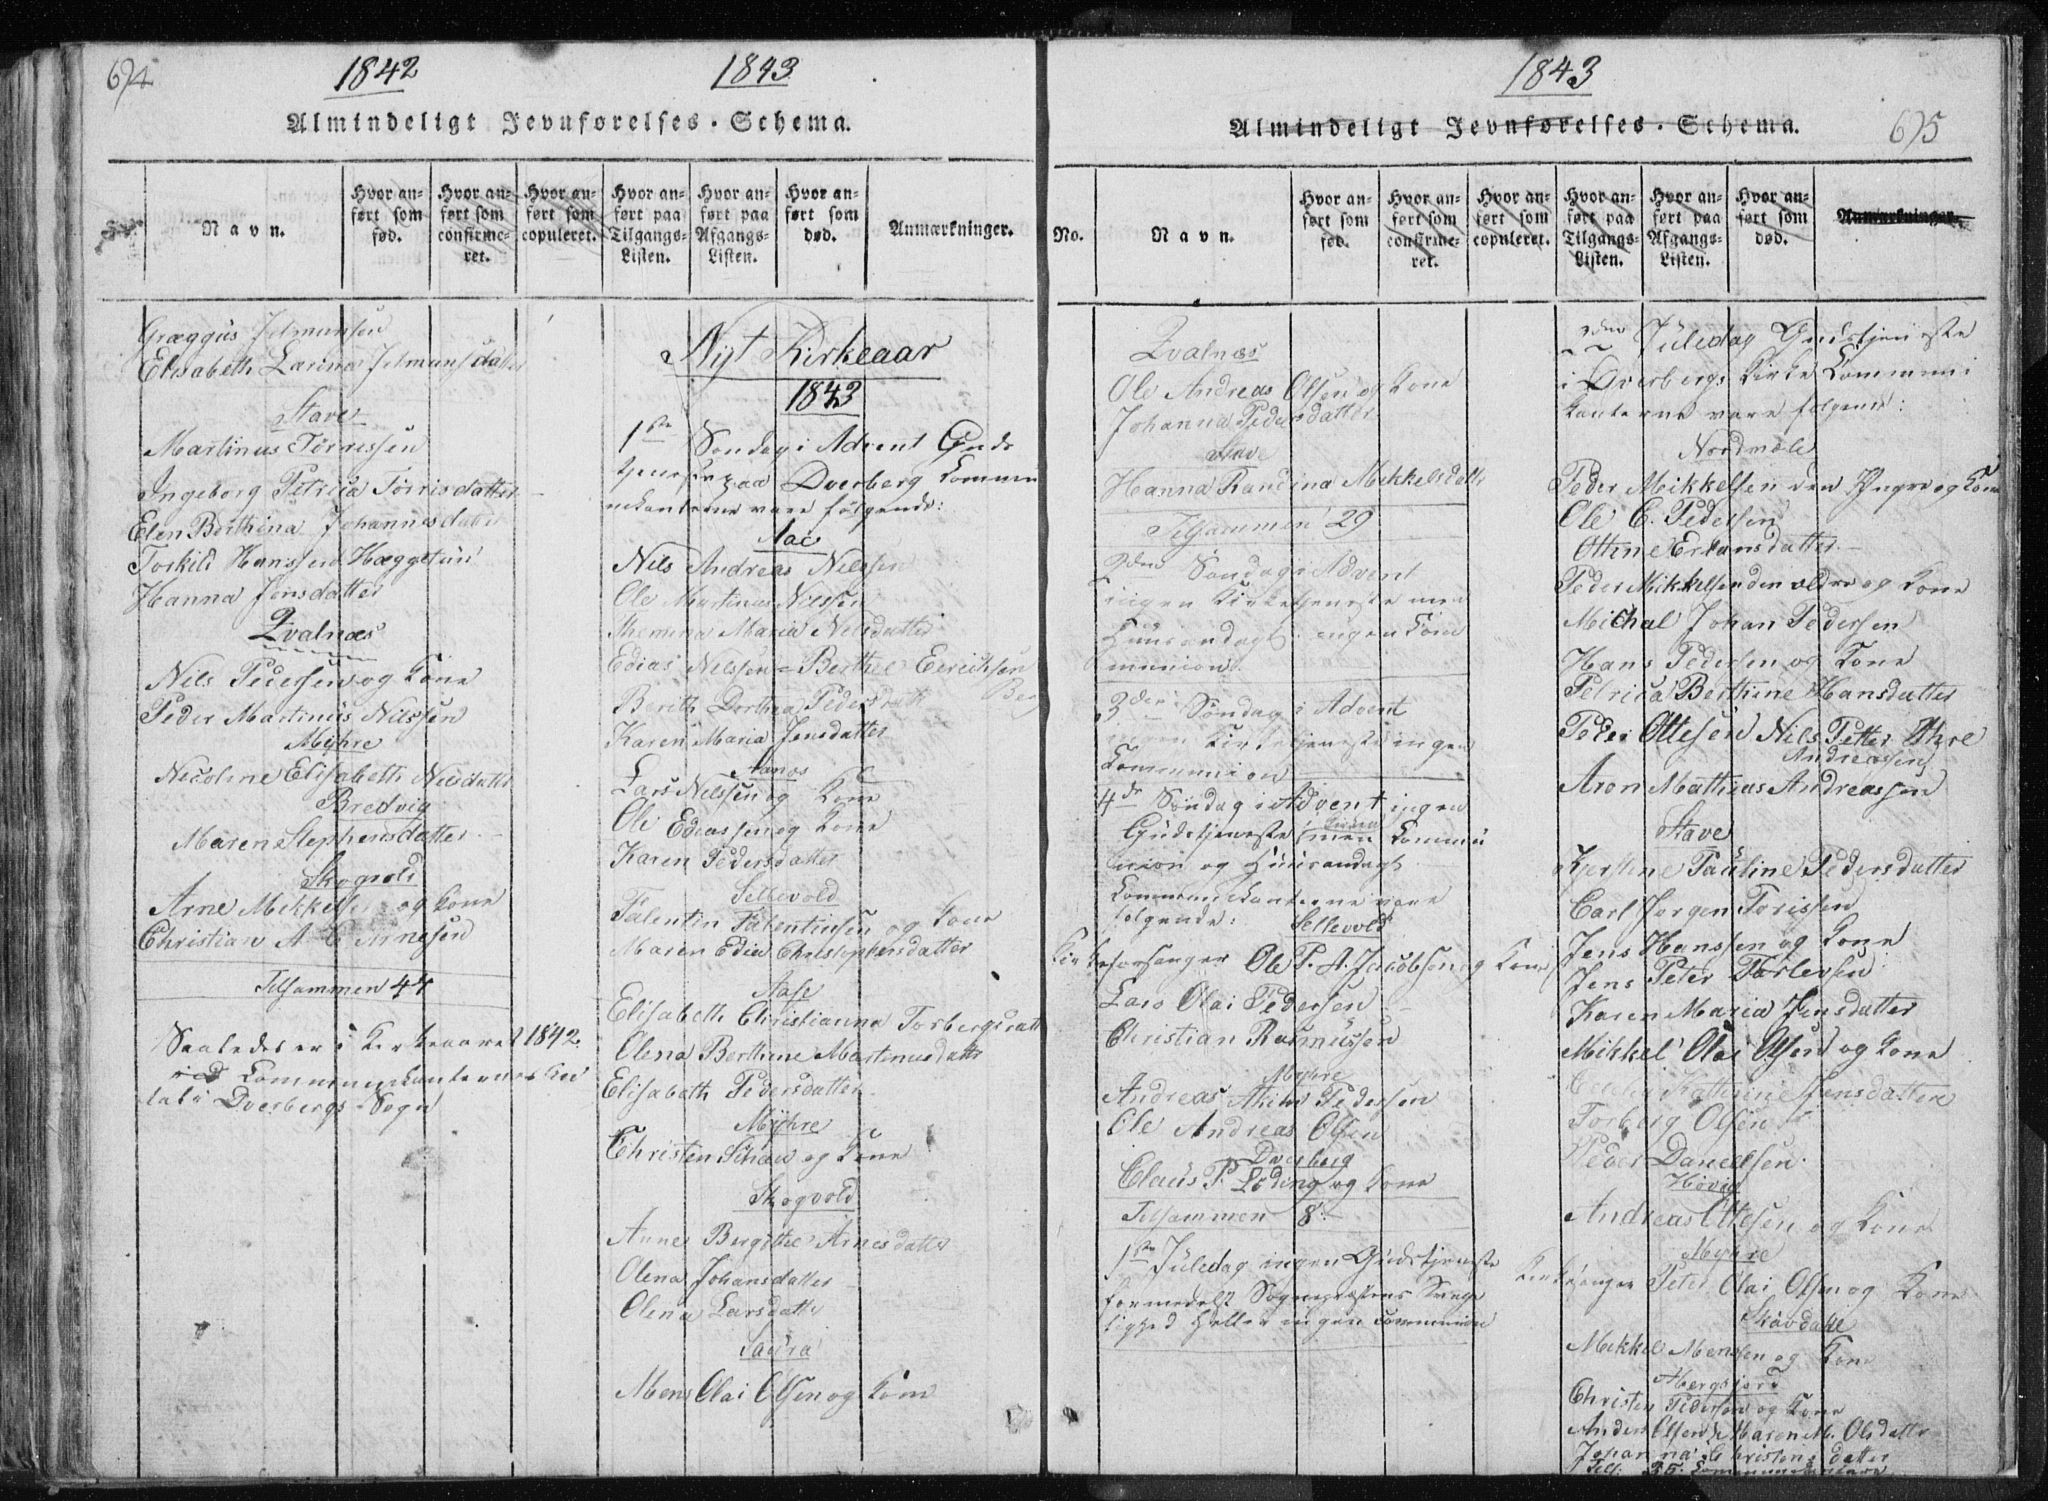 694
1842
1843
Almindeligt Jevnførelses-Schema.
Navn.
Hvor anført som fød.
Hvor anført som confirmeret.
Hvor anført som copuleret.
Hvor anført paa Tilgangs-Listen.
Hvor anført paa Afgangs-Listen.
Hvor anført som død.
Anmærkninger.
Jetmundsen
Elisabeth Larina Jetmundsdatter
Stave
Martinus Torrissen
Ingeborg Petrica Torrisdatter
Elen Berthina Johannesdatter
Torkild Hanssen Hæggetun
Hanna Jensdatter
Qvalnæs
Nils Pedersen og Kone
Peder Martinus Nilssen
Myhre
Nicoline Elisabeth Nilsdatter
Bredvig
Maren Stephensdatter
Skogvold
Arne Mikkelsen og Kone
Christian A. C. Arnesen
Tilsammen 44
Saaledes er i Kirkeaaret 1842
Communicanternes An
tal i Dverbergs Sogn
Nyt Kirkeaar
1843
1ste Søndag i Advent Guds
tjeneste paa Dverberg Commu
nicanterne vare følgende:
Aae
Nils Andreas Nilssen
Ole Martinus Nilssen
Maria Nilsdatter
Edias Nilssen - Berthel Eerichsen
Berg
Berith Dorthea Pedersdatt
Karen Maria Jensdatter
Aanes
Lars Nilssen og Kone
Ole Ediassen og Kone
Karen Pedersdatter
Sellevold
Falentin Falentinsen og Kone
Maren Edia Christophersdatter
Aase
Elisabeth Christianna Torbergsdatt
Olena Berthine Martinusdatt
Elisabeth Pedersdatter
Myhre
Christen Schau og Kone
Skogvold
Anne Bergithe Arnesdatter
Olena Johansdatter
Olena Larsdatter
Saura
Mens Olai Olsen og Kone
1843
695
Almindeligt Jevnførelses-Schema.
No.
Navn.
Hvor anført som fød.
Hvor anført som confirmeret.
Hvor anført som copuleret.
Hvor anført paa Tilgangs-Listen.
Hvor anført paa Afgangs-Listen.
Hvor anført som død.
Anmærkninger.
Qvalnæs
Ole Andreas Olsen og Kone
Johanna Pedersdatter
Stave
Hanna Randina Mikkelsdatter
Tilsammen 29
2den Søndag i Advent
ingen Kirketjeneste men
Huusandagt ingen Com
munion.
3die Søndag i Advent
ingen Kirketjeneste ingen
Communion
4de Søndag i Advent ingen
Gudstjeneste men Commu
nion og Huusandagt
Communicanterne vare
følgende: Sellevold
Kirkeforsanger Ole P. A. Jacobsen og Kone
Lars Olai Pedersen
Christian Rasmussen
Myhre
Andreas Pedersen
Ole Andreas Olsen
Dverberg
Claus P. Loding og Kone
Tilsammen 8.
1ste Juledag ingen Gudstjeneste
formedelst Sognepræstens Svage
lighed heller ingen Communion
2den Juledag Gudstjeneste
i Dverbergs Kirke Commun
icanterne vare følgende:
Nordmæle
Peder Mikkelsen den Yngre og Kone
Ole C. Pedersen
Peder Mikkelsen den ældre og Kone
Michal Johan Pedersen
Hans Pedersen og Kone
Petrica Berthine Hansdatter
Peder Ottesen Nils Petter
Andreassen
Aron Mathias Andreassen
Stave
Kjerstine Pauline Pedersdatter
Carl Jørgen Torissen
Jens Hanssen og Kone
Jens Peter Torlevsen
Karen Maria Jensdatter
Mikkel Olai Olsen og Kone
Cathrine Jensdatter
Torberg Olsen
Peder Danielsen
Høvig
Andreas Ottesen og Kone
Myhre
Kirkesanger Peter Olai Olsen og Kone
Skovdahl
Mikkel Mensen og Kone
Abergsjord
Christen Pedersen og Kone
Anders Olsen Maren M. Olsdatter
Johanna Christensdatter
Tils: 35 Communicantere